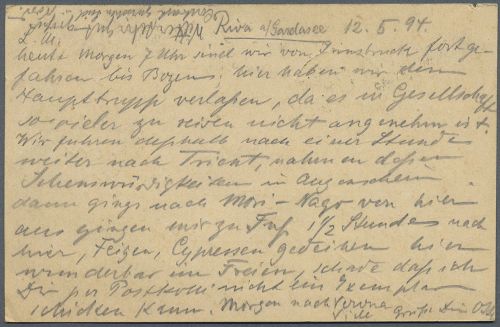 Riva a/Gardasee 12.5.94.
L. M.
heute Morgen 7 Uhr sind wir von Innsbruck fortge-
fahren bis Bozen; hier haben wir den
Haupttrupp verlaßen, da es in Gesellschaft
so vieler zu reisen nicht angenehm ist.
Wir fuhren deßhalb nach einer Stunde
weiter nach Trient, nahmen deßen
Sehenswürdigkeiten in Augenschein
dann gings nach Mori-Nago von hier
aus gingen wir zu Fuß 1 1/2 Stunden nach
hier, Feigen, Cypressen gedeihen hier
wunderbar im Freien, schade daß ich
Dir per Postkarte nicht ein Exemplar
schicken kann. Morgen nach Verona
Viele Grüße Dein